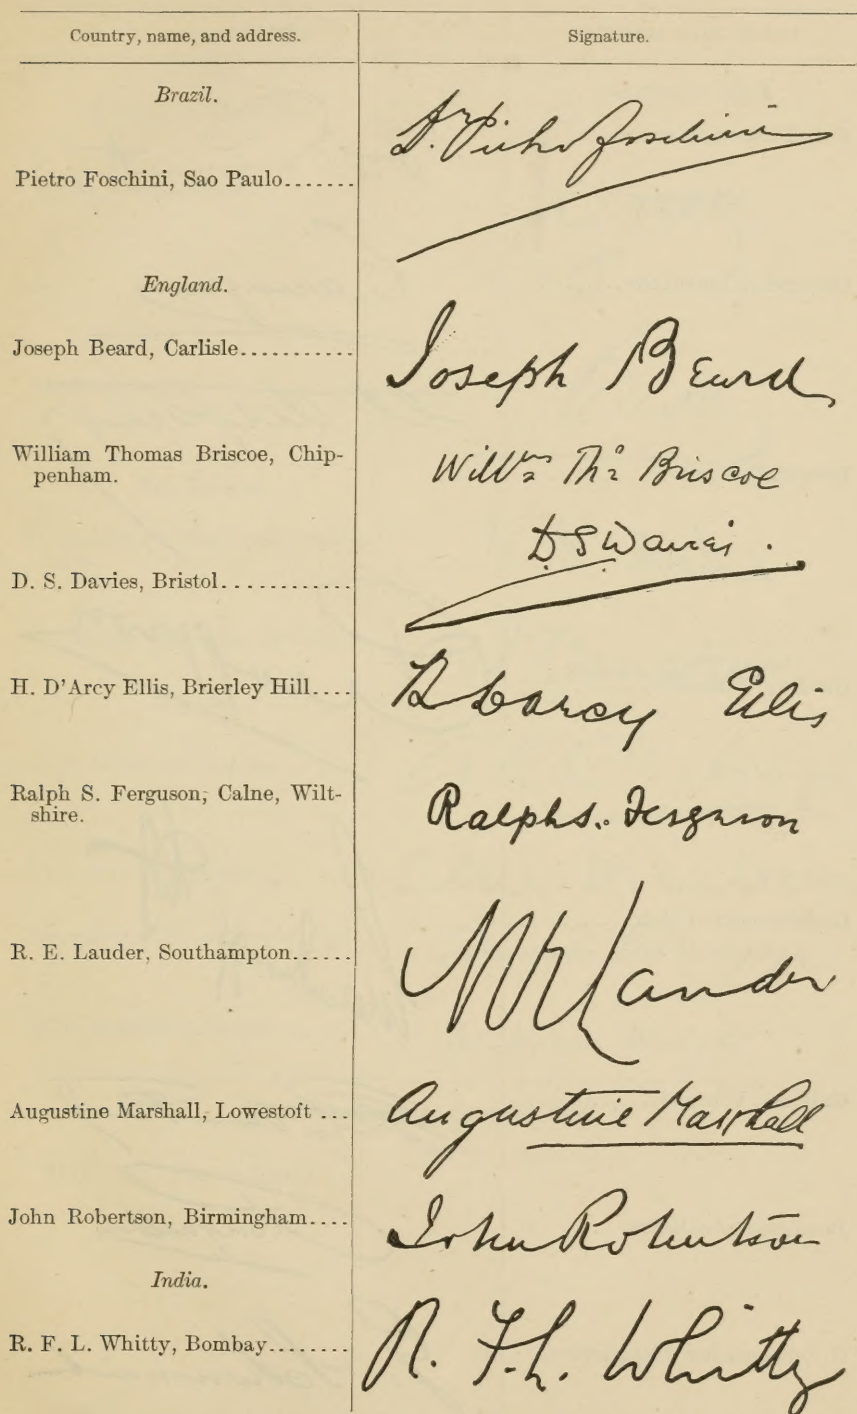 Country, name, and address.
Signature.
Brazil.
Pietro Foschini, Sao Paulo.......
Dr. Pietro Foschini
England.
Joseph Beard, Carlisle...........
Joseph Beard
William Thomas Briscoe, Chip-
penham.
Willm Tho Briscoe
D. S. Davies, Bristol............
D S Davies.
H. D'Arcy Ellis, Brierley Hill....
H Darcy Ellis
Ralph S. Ferguson, Calne, Wilt-
shire.
Ralph S. Ferguson
R. E. Lauder, Southampton......
Lauder
Augustine Marshall, Lowestoft ...
Augustine Marshall
John Robertson, Birmingham....
John Robertson
India.
R. F. L. Whitty, Bombay........
R. F. L. Whitty